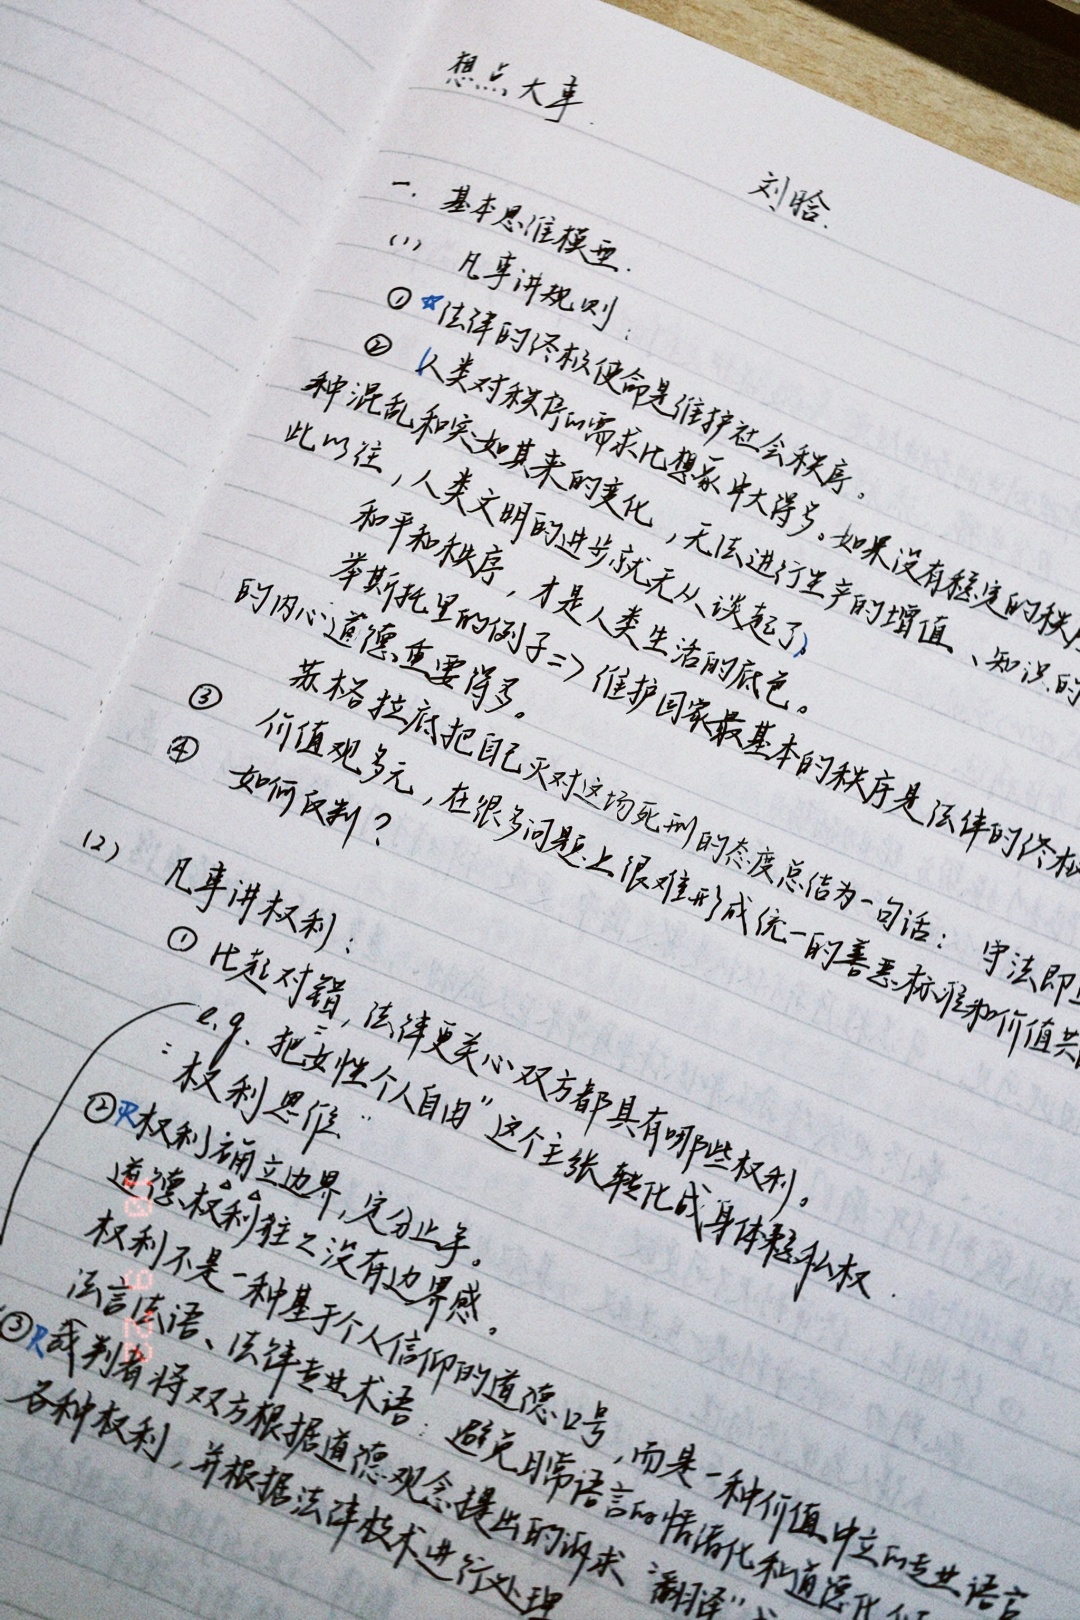 想点大事.
刘晗.
一. 基本思维模型.
(1) 凡事讲规则:
① ☆法律的终极使命是维护社会秩序。
② 人类对秩序的需求比想象中大得多。如果没有稳定的秩
种混乱和突如其来的变化,无法进行生产的增值、知识的
此以往,人类文明的进步就无从谈起了
和平和秩序,才是人类生活的底色。
举斯托里的例子=>维护国家最基本的秩序是法律的终极
的内心道德重要得多。
苏格拉底把自己灭对这场死刑的态度总结为一句话: 守法即
③ 价值观多元,在很多问题上很难形成统一的善恶标准和价值共
④ 如何反判?
(2) 凡事讲权利:
① 比起对错,法律更关心双方都具有哪些权利。
e.g. 把"女性个人自由"这个主张转化成身体隐私权.
: 权利思维"
② 权利确立边界,定分止争。
道德权利往々没有边界感。
权利不是一种基于个人信仰的道德口号,而是一种价值中立的专业语言
法言法语、法律专业术语:避免日常语言的情绪化和道德化
③ 裁判者将双方根据道德观念提出的诉求"翻译"
各种权利,并根据法律技术进行处理